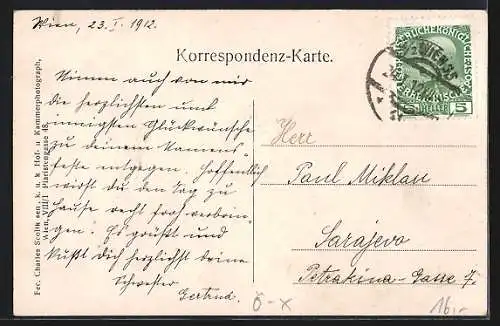 Wien, 23. I. 1912.
Korrespondenz-Karte.
Nimm auch von mir
die herzlichsten und
innigsten Glückwünsche
zu deinem Namens-
feste entgegen. Hoffentlich
wirst du den Tag zu
Hause recht froh verbrin-
gen. Es grüßt und
küßt dich herzlichst deine
Schwester
Gertrud.
Herr
Paul Miklau
Sarajevo
Petrakina-Gasse 7.
5
Ö-X
16.-
Fec. Charles Scolik sen., k. u. k. Hof- u. Kammerphotograph,
Wien, VIII/1 Piaristengasse 48.